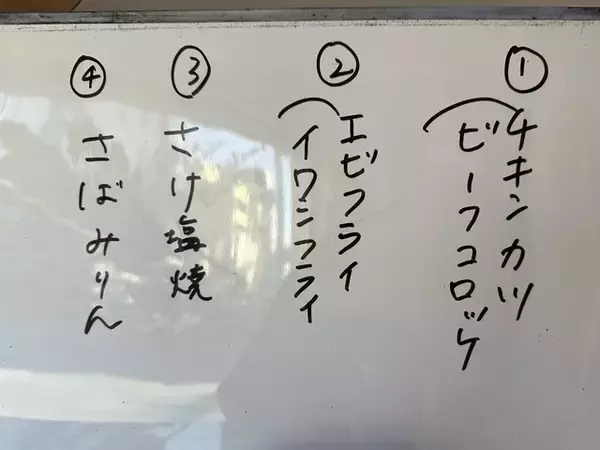 ①
チキンカツ
ビーフコロッケ
②
エビフライ
イワシフライ
③
さけ塩焼
④
さばみりん